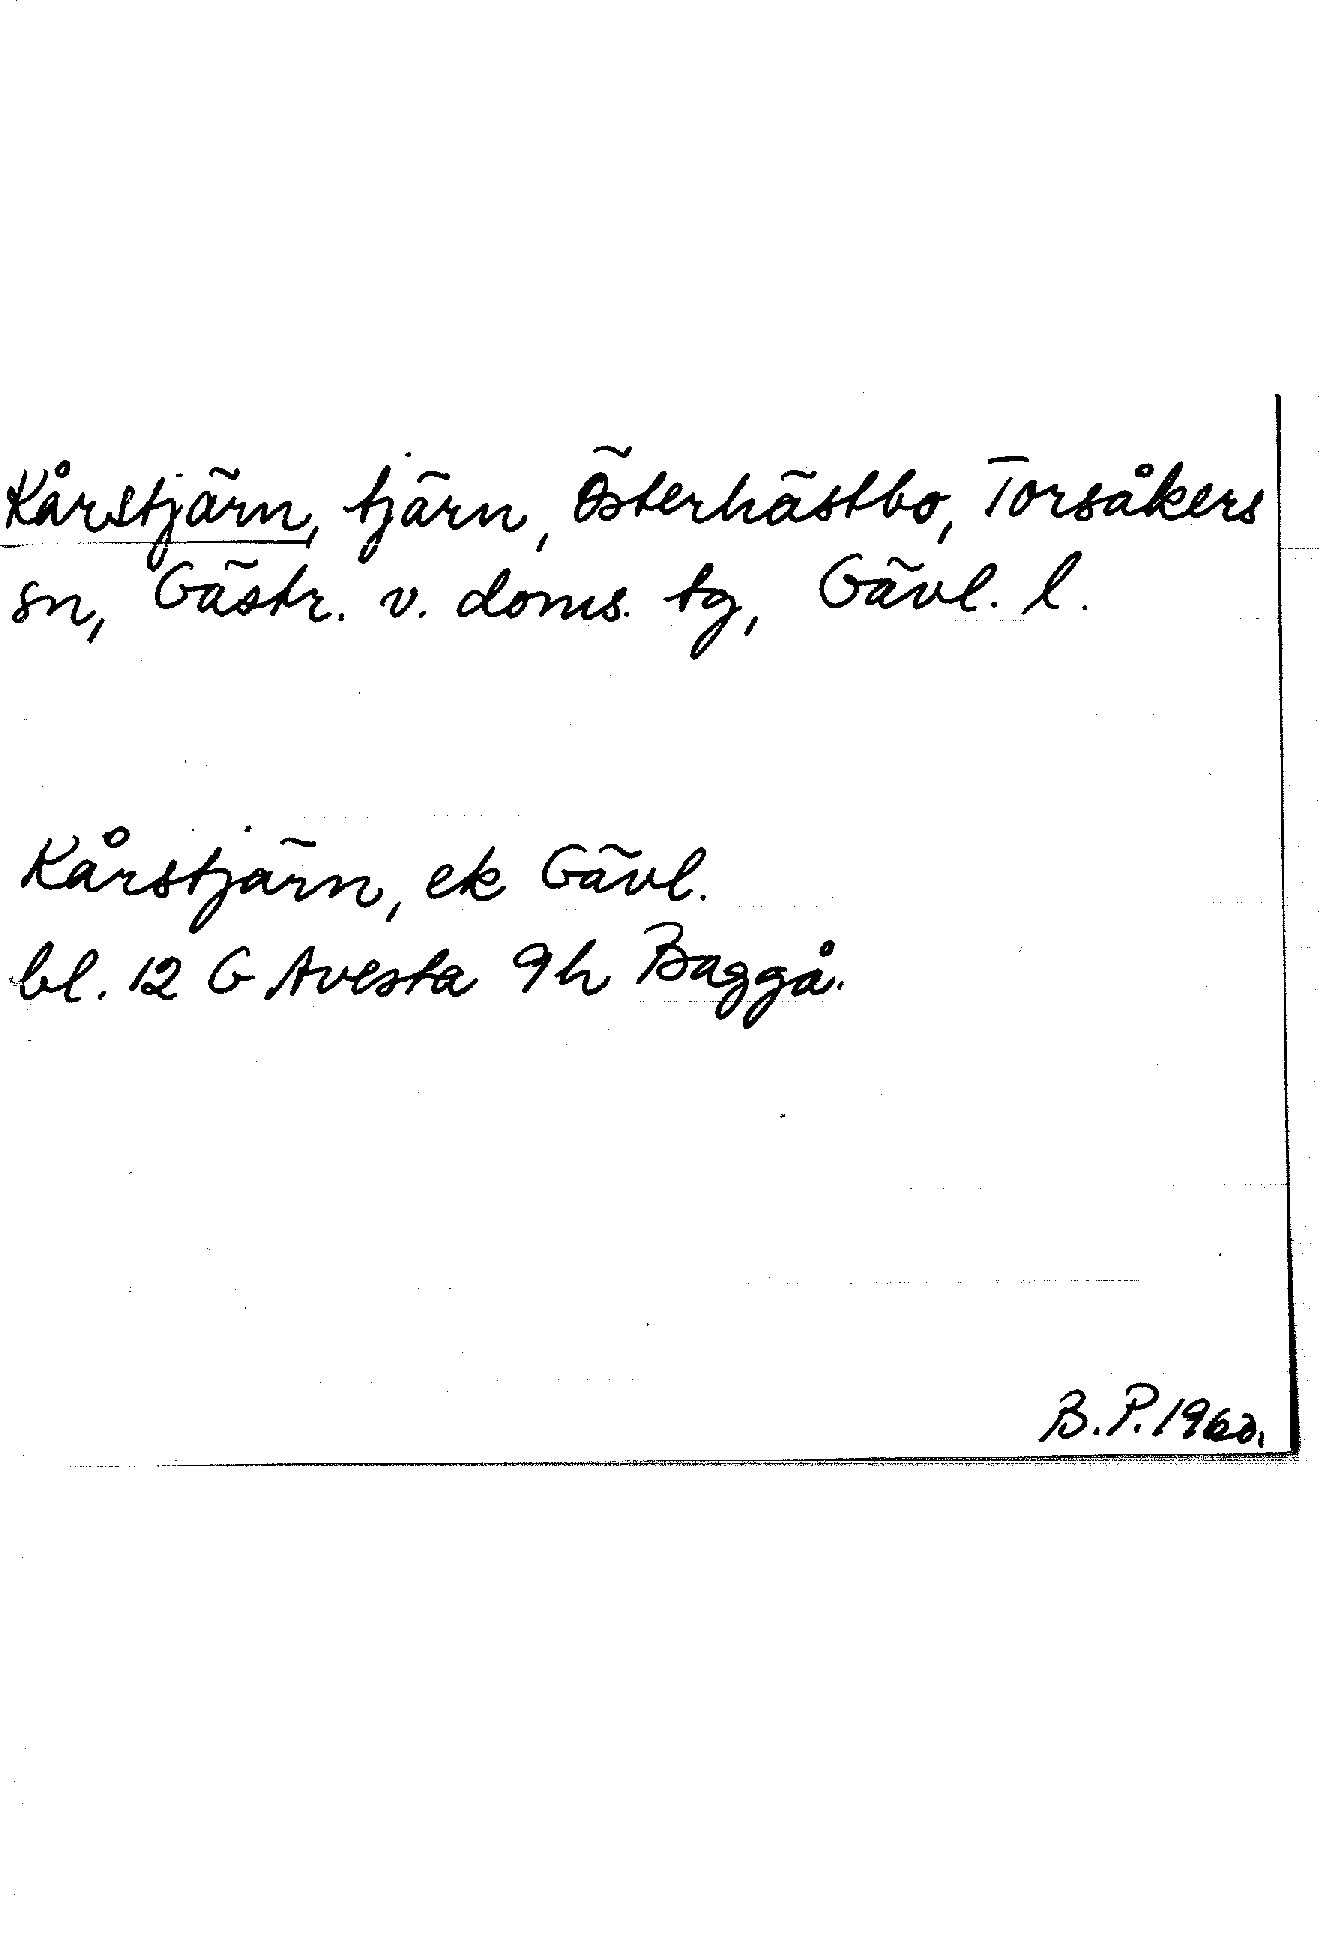 Kårstjärn, tjärn, Österhästbo, Torsåkers
sn, Gästr. v. doms. tg, Gävl. l.
Kårstjärn, ek Gävl.
bl. 12 G Avesta 9h Baggå.
B.P. 1960.